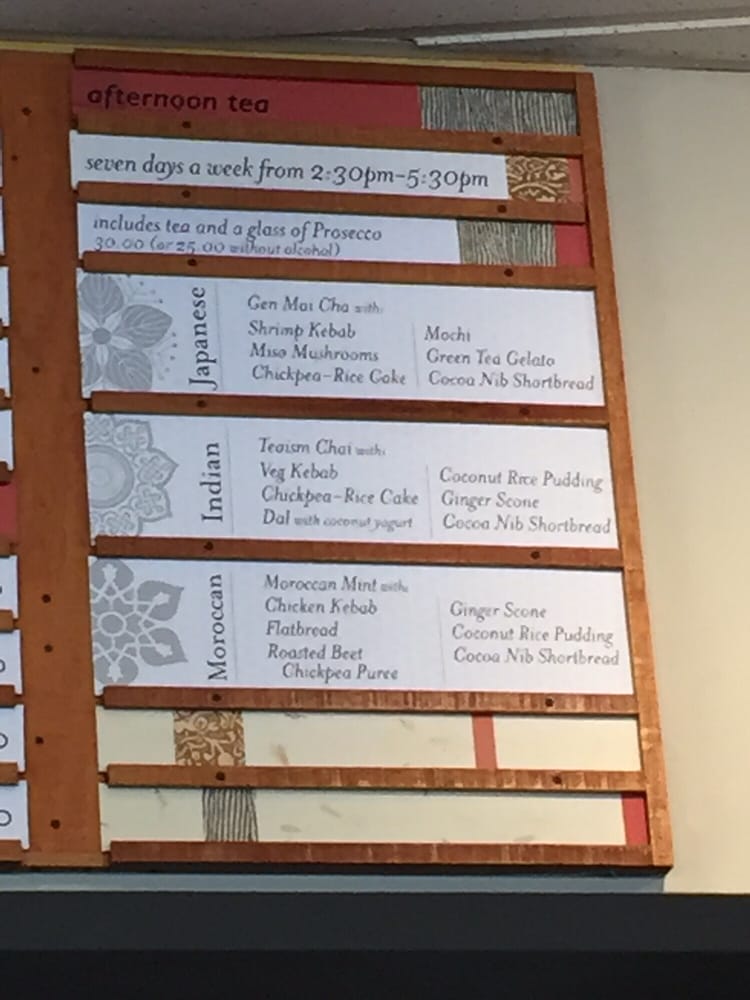 afternoon tea
seven days a week from 2:30pm-5:30pm
includes tea and a glass of Prosecco
30.00 (or 25.00 without alcohol)
Japanese
Gen Mai Cha with:
Shrimp Kebab
Miso Mushrooms
Chickpea-Rice Cake
Mochi
Green Tea Gelato
Cocoa Nib Shortbread
Indian
Teaism Chai with:
Veg Kebab
Chickpea-Rice Cake
Dal with coconut yogurt
Coconut Rice Pudding
Ginger Scone
Cocoa Nib Shortbread
Moroccan
Moroccan Mint with:
Chicken Kebab
Flatbread
Roasted Beet
Chickpea Puree
Ginger Scone
Coconut Rice Pudding
Cocoa Nib Shortbread